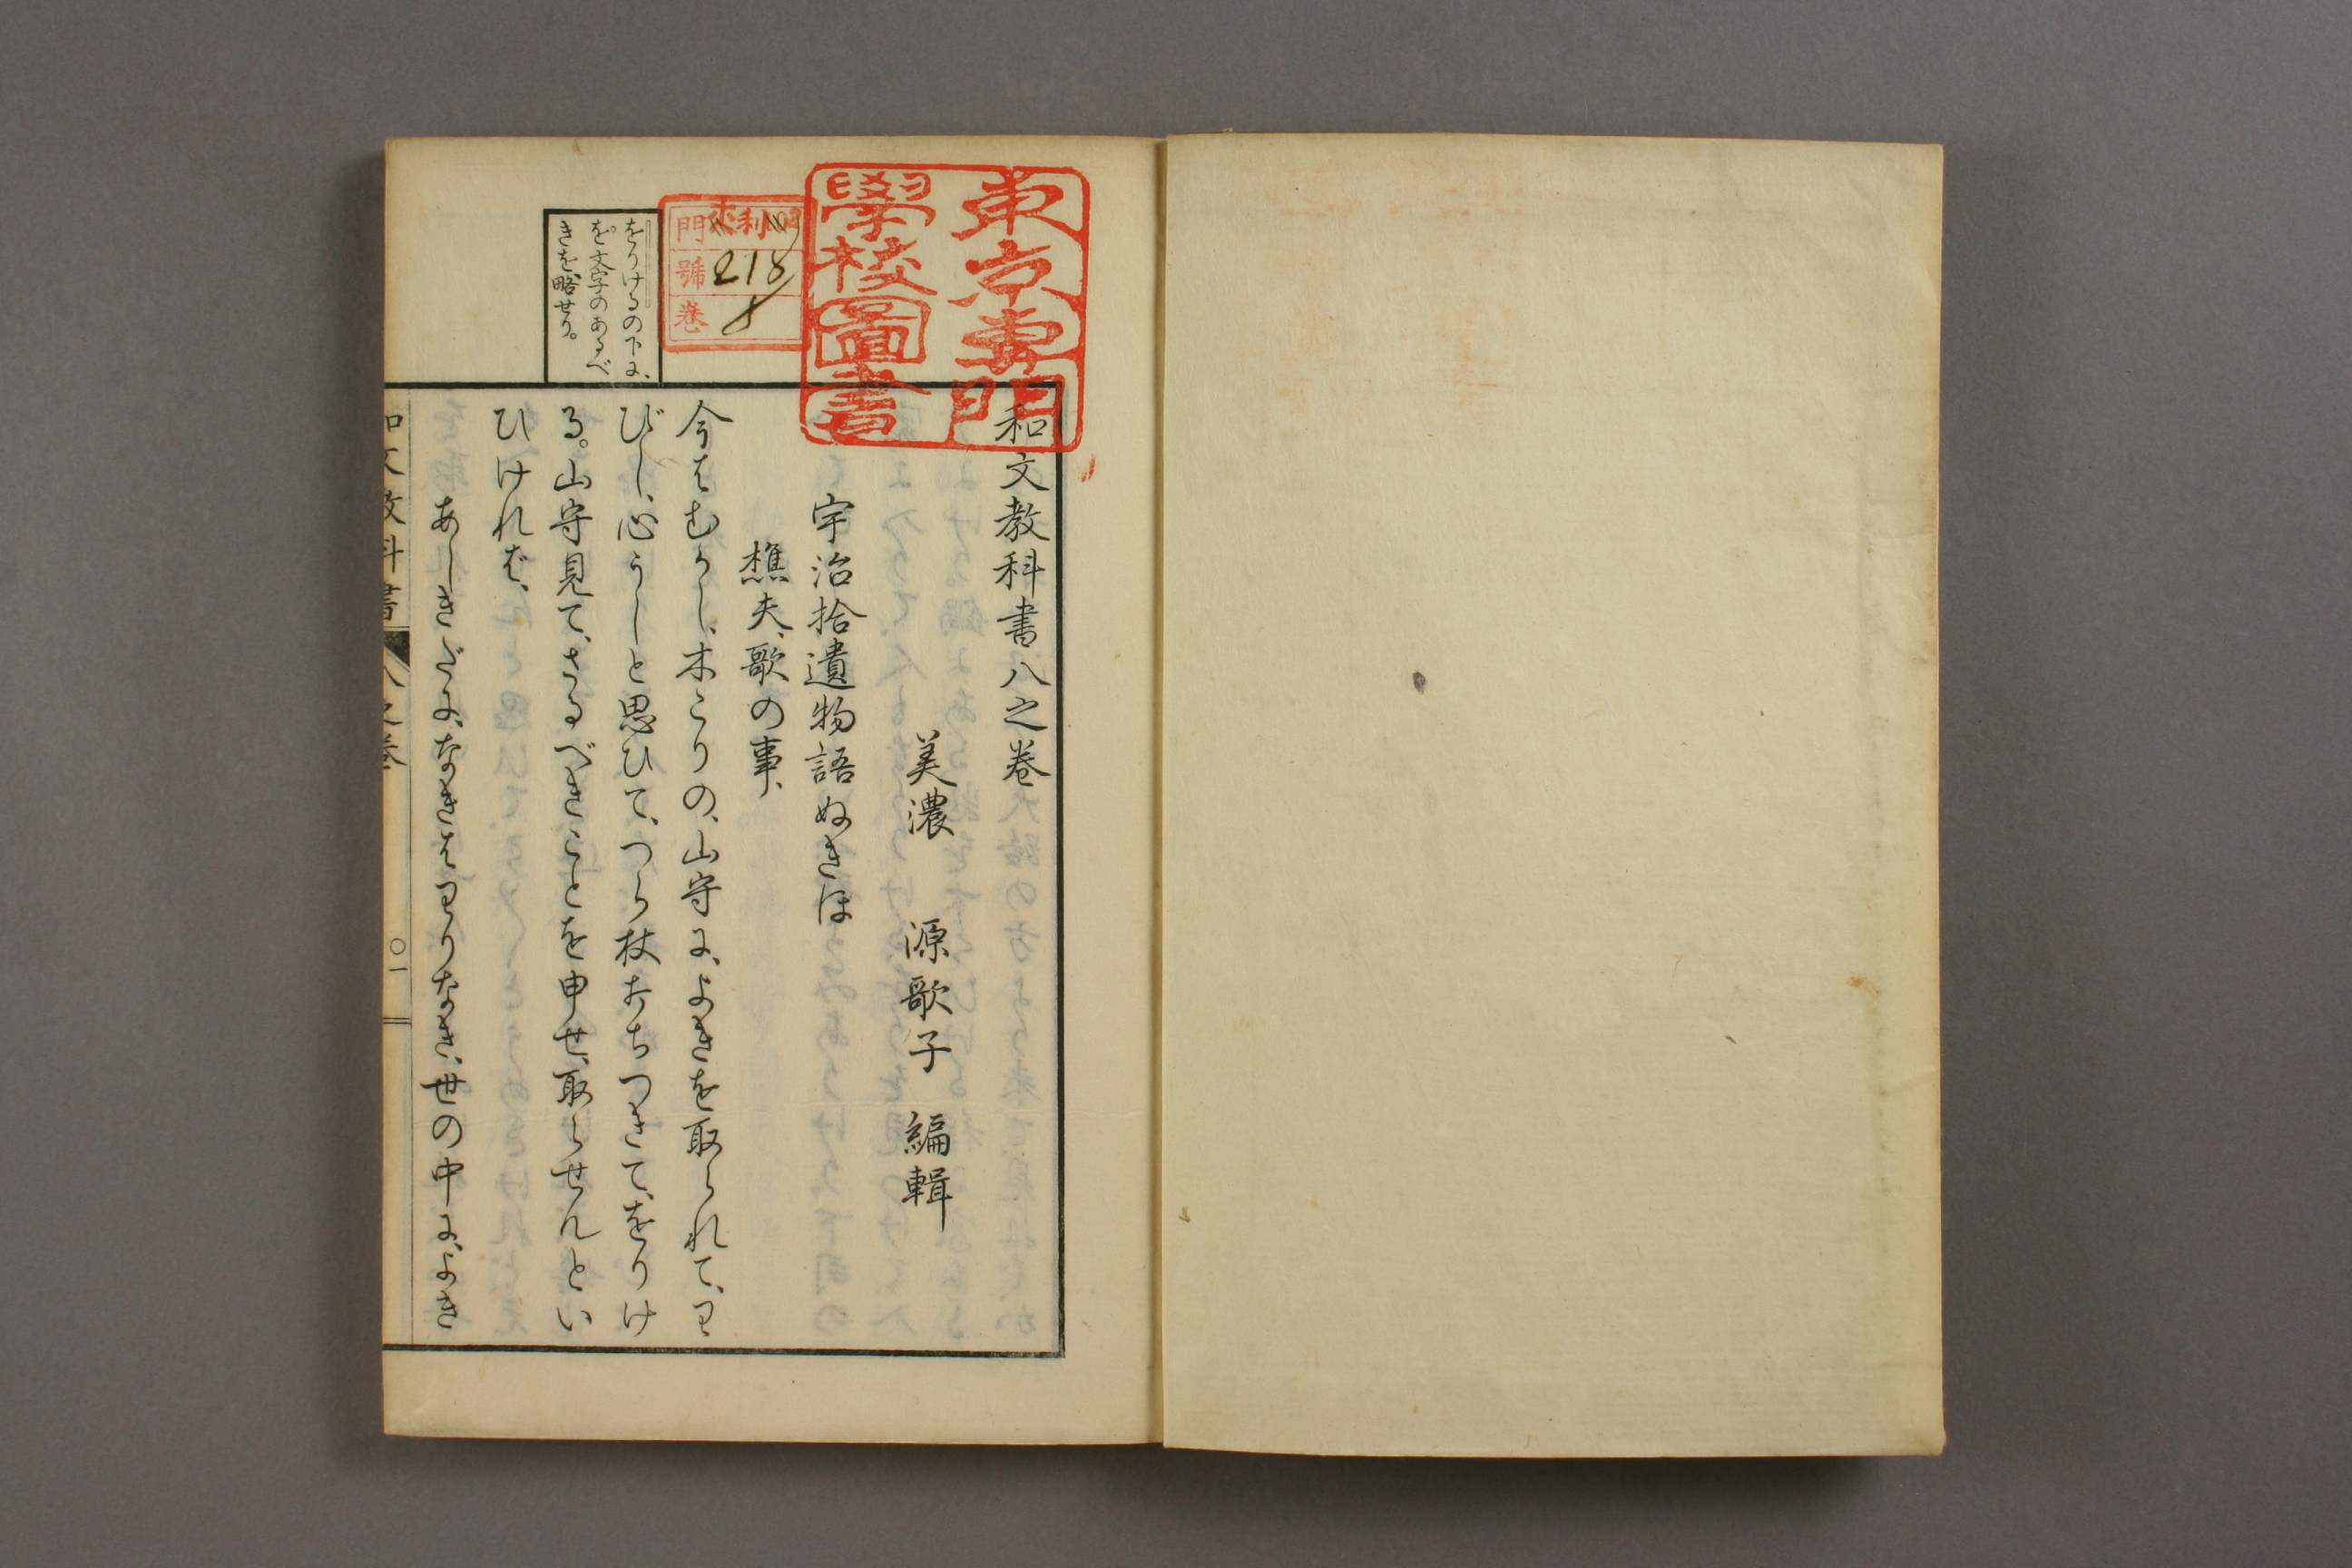 東京専門
學校圖書
門
號 218
巻 8
をりけるの下に、
を文字のあるべ
きを、略せり。
和文教科書八之巻
美濃 源歌子 編輯
宇治拾遺物語ぬきほ
樵夫、歌の事、
今はむかし、木こりの、山守に、よきを取られて、わ
びし、心うしと思ひて、つら杖うちつきて、をりけ
る。山守見て、さるべきことを申せ、取らせんとい
ひければ、
あしきだに、なきはわりなき、世の中に、よき
和文教科書 八之巻 〇一